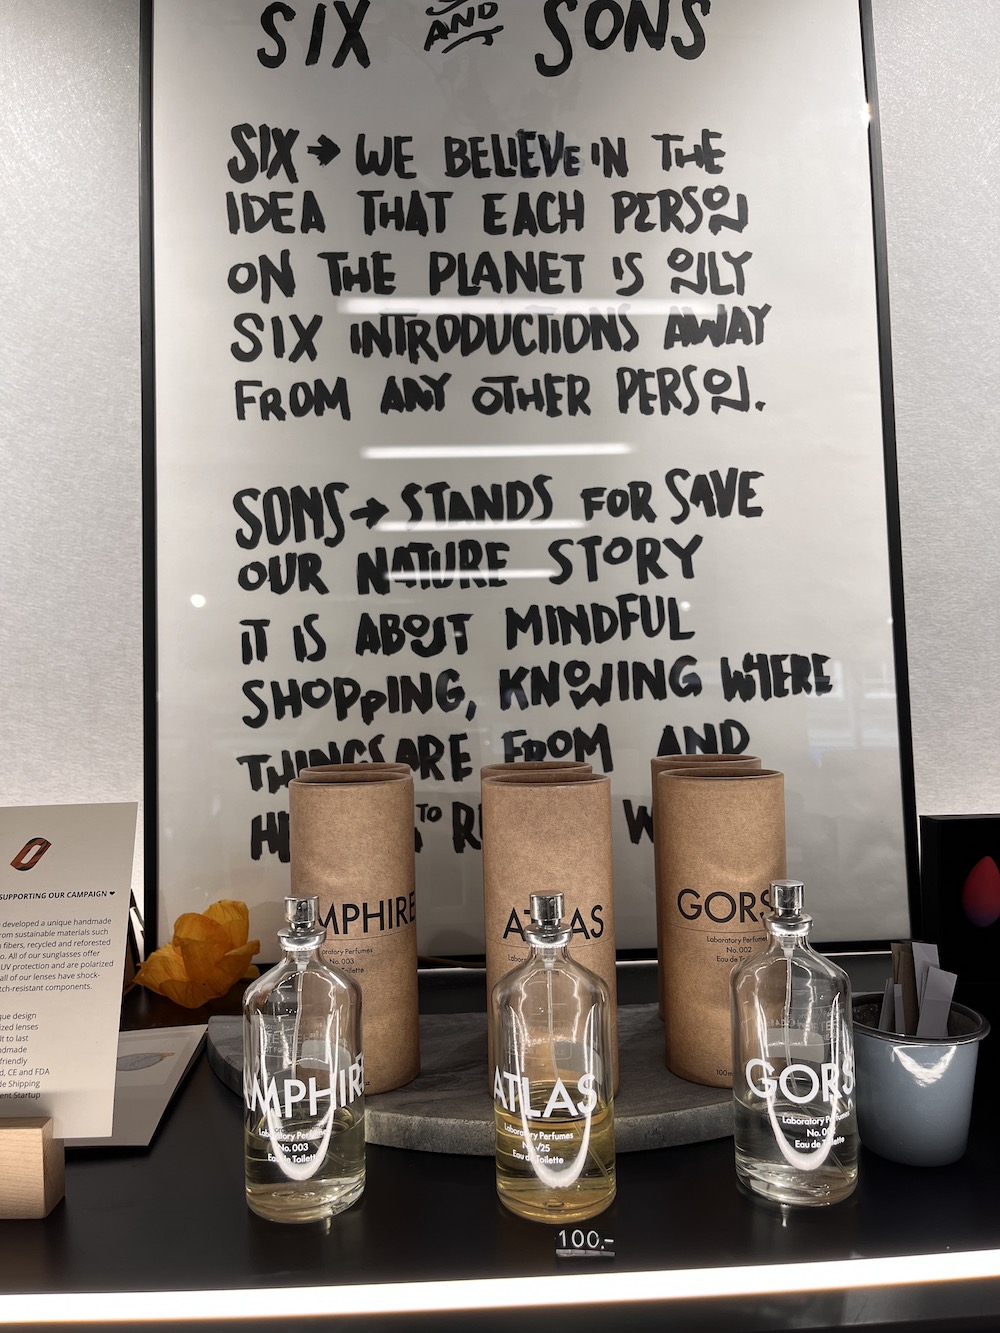 SIX AND SONS
SIX → WE BELIEVE IN THE
IDEA THAT EACH PERSON
ON THE PLANET IS ONLY
SIX INTRODUCTIONS AWAY
FROM ANY OTHER PERSON.
SONS → STANDS FOR SAVE
OUR NATURE STORY
IT IS ABOUT MINDFUL
SHOPPING, KNOWING WHERE
THINGS ARE FROM AND
TO
SUPPORTING OUR CAMPAIGN ♥
developed a unique handmade
from sustainable materials such
fibers, recycled and reforested
All of our sunglasses offer
UV protection and are polarized
all of our lenses have shock-
components.
design
lenses
to last
friendly
CE and FDA
Shipping
Startup
MPHIRE
Laboratory Perfumes
No. 003
Toilette
ATLAS
GORS
Laboratory Perfumes
No. 002
Eau de
100m
MPHIR
Laboratory Perfumes
No. 003
Eau de Toilette
ATLAS
Laboratory Perfumes
Eau de Toilette
GORS
Laboratory Perfumes
No.
Eau de Toilette
100.-